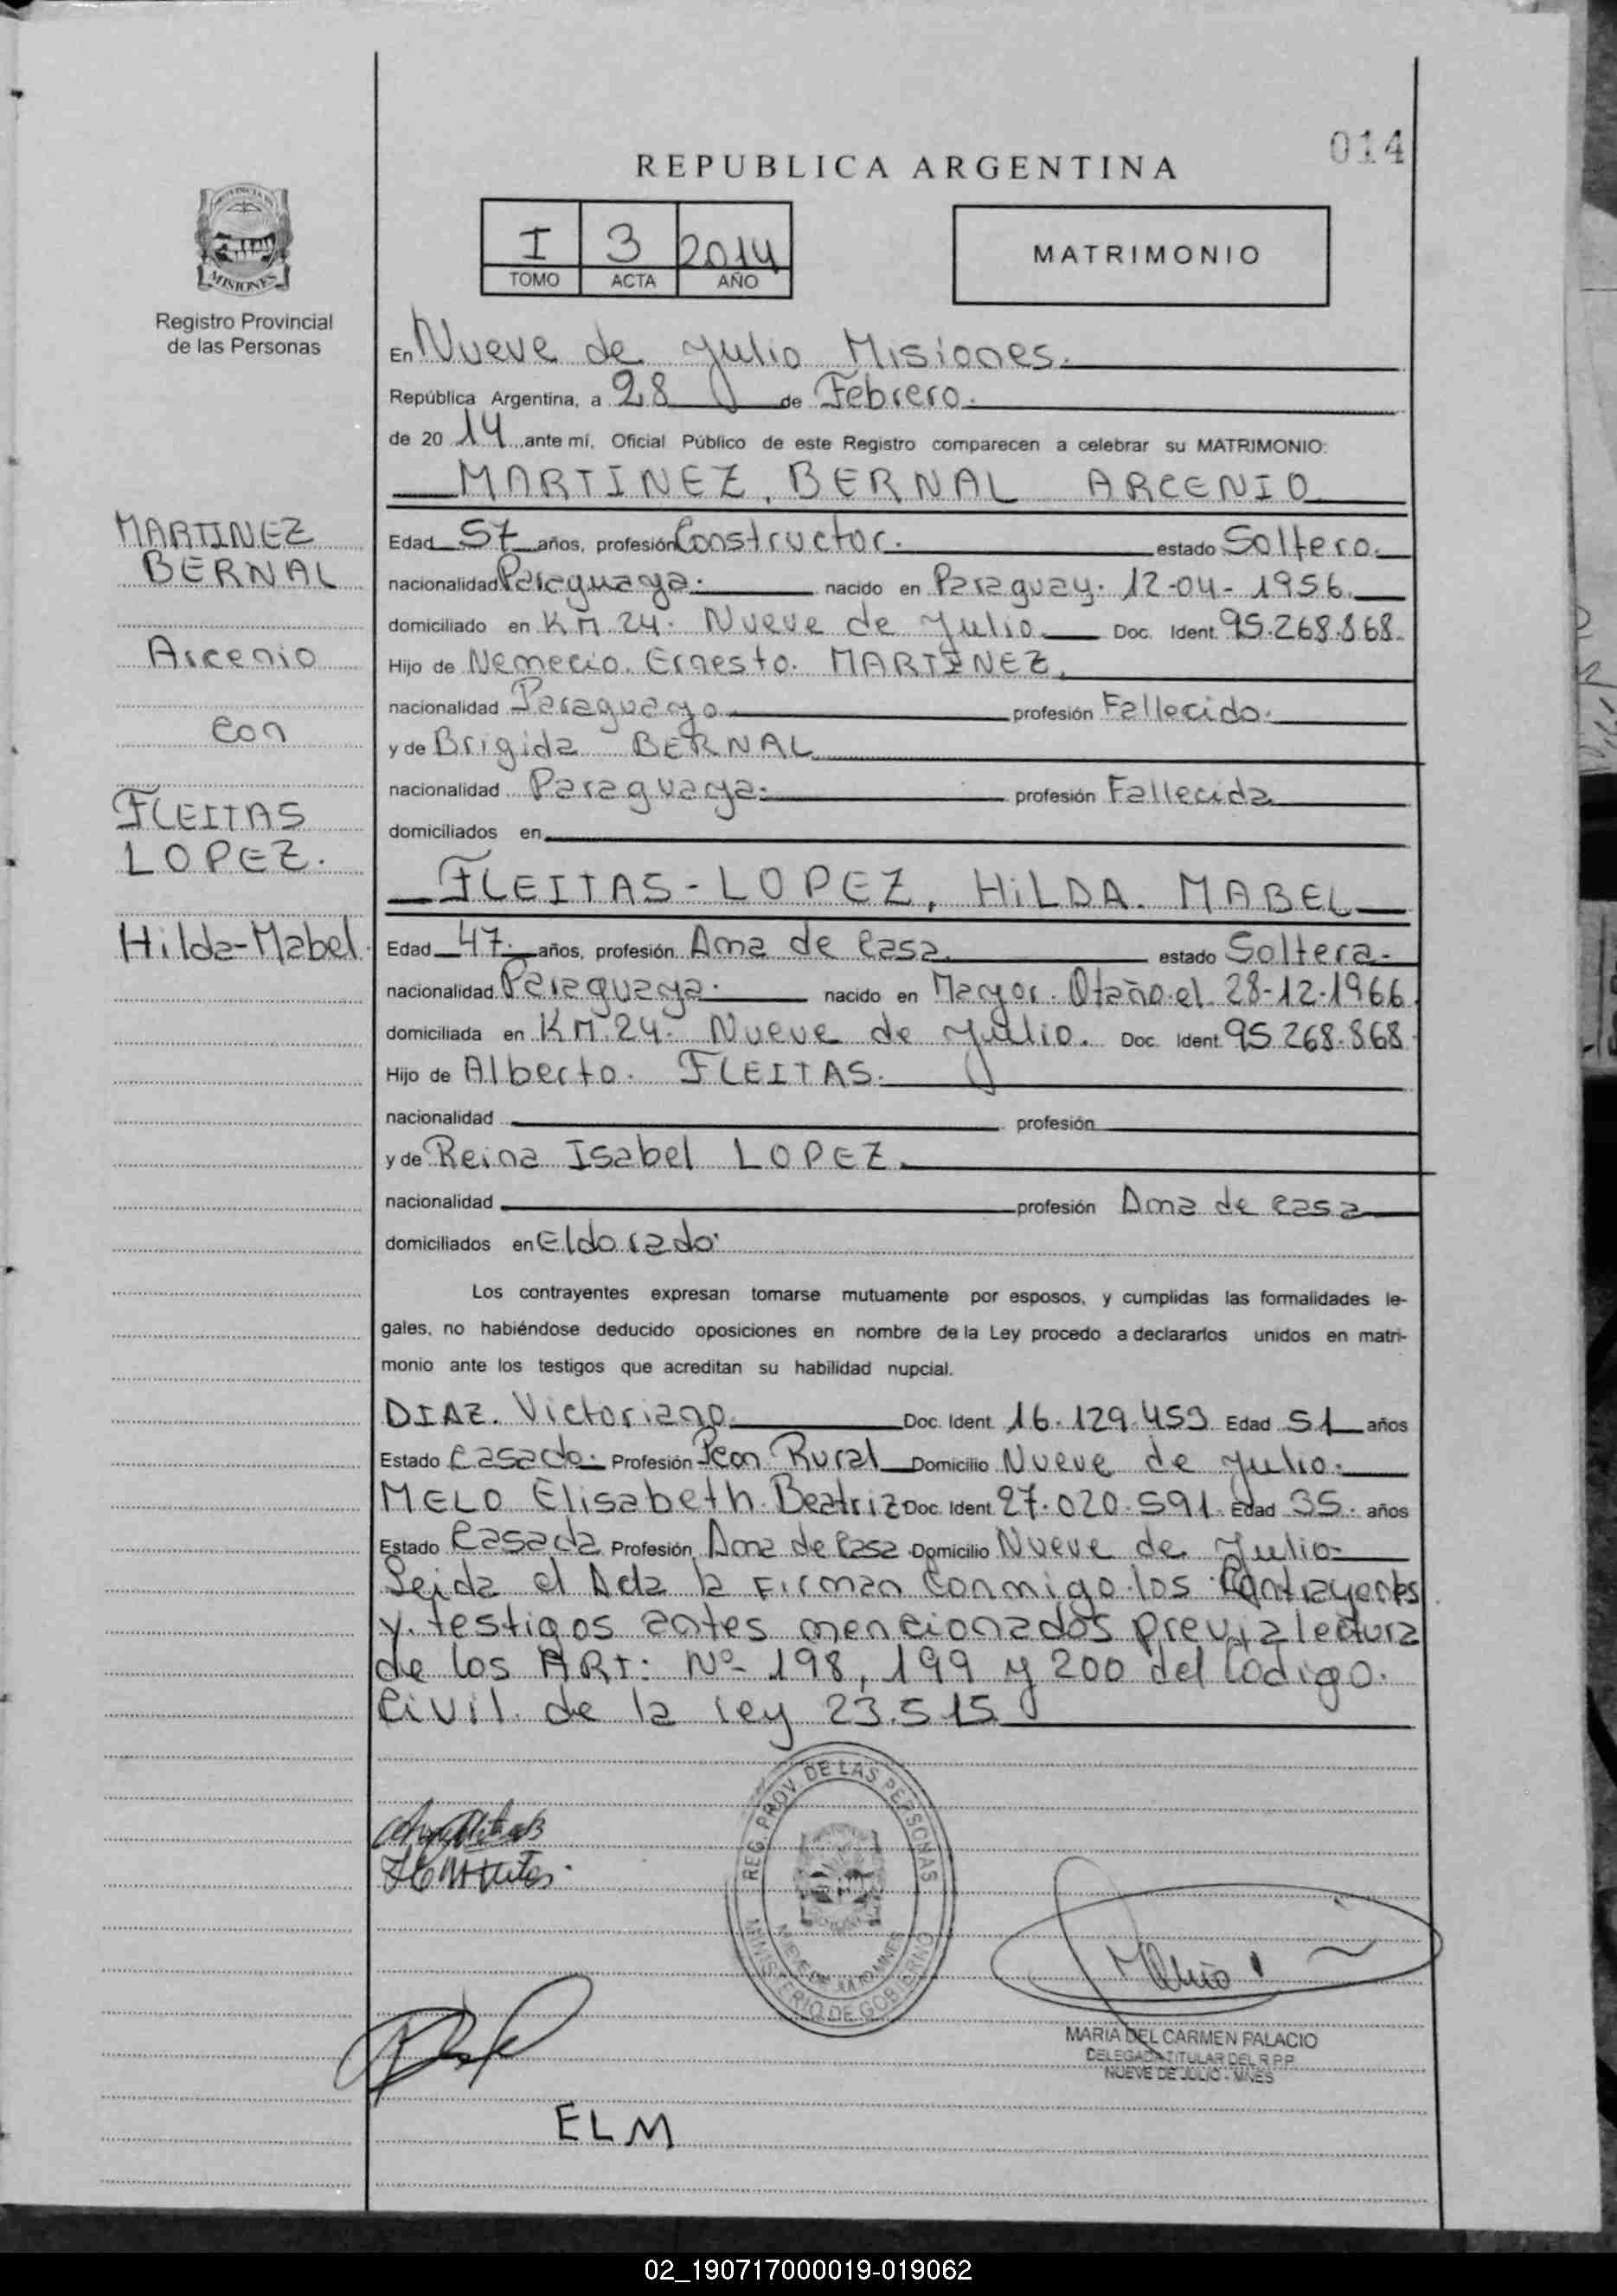 014
REPUBLICA ARGENTINA
PROVINCIA DE
MISIONES
Registro Provincial
de las Personas
I 3 2014
TOMO ACTA AÑO
MATRIMONIO
En Nueve de Julio Misiones.
República Argentina, a 28 de Febrero.
de 20 14 ante mí, Oficial Público de este Registro comparecen a celebrar su MATRIMONIO:
MARTINEZ, BERNAL ARCENIO
MARTINEZ
BERNAL
Arcenio
con
FLEITAS
LOPEZ.
Hilda-Mabel.
Edad 57 años, profesión Constructor. estado Soltero.
nacionalidad Paraguaya. nacido en Paraguay. 12-04-1956.
domiciliado en KM 24. Nueve de Julio Doc. Ident. 95.268.868.
Hijo de Nemecio. Ernesto. MARTINEZ,
nacionalidad Paraguayo profesión Fallecido.
y de Brigida BERNAL
nacionalidad Paraguaya. profesión Fallecida
domiciliados en
FLEITAS-LOPEZ, HILDA. MABEL
Edad 47. años, profesión Ama de casa estado Soltera.
nacionalidad Paraguaya. nacido en Mayor. Otaño.el 28-12-1966.
domiciliada en KM.24. Nueve de Julio. Doc. Ident. 95 268.868.
Hijo de Alberto. FLEITAS.
nacionalidad profesión
y de Reina Isabel LOPEZ.
nacionalidad profesión Ama de casa
domiciliados en Eldorado.
Los contrayentes expresan tomarse mutuamente por esposos, y cumplidas las formalidades le-
gales, no habiéndose deducido oposiciones en nombre de la Ley procedo a declararlos unidos en matri-
monio ante los testigos que acreditan su habilidad nupcial.
DIAZ. Victoriano. Doc. Ident. 16.129.453 Edad 51 años
Estado casado. Profesión Peon Rural Domicilio Nueve de Julio.
MELO Elisabeth. Beatriz Doc. Ident. 27.020.591. Edad 35. años
Estado Casada Profesión Ama de Casa Domicilio Nueve de Julio
Leida el Acta la Firman conmigo los Contrayentes
y testigos antes mencionados previa lectura
de los ART: Nº 198, 199 y 200 del Codigo.
Civil. de la ley 23.515
REG. PROV. DE LAS PERSONAS
NUEVE DE JULIO MNES
MINISTERIO DE GOBIERNO
MARIA DEL CARMEN PALACIO
DELEGADA TITULAR DEL R.P.P.
NUEVE DE JULIO - MNES
ELM
02_190717000019-019062